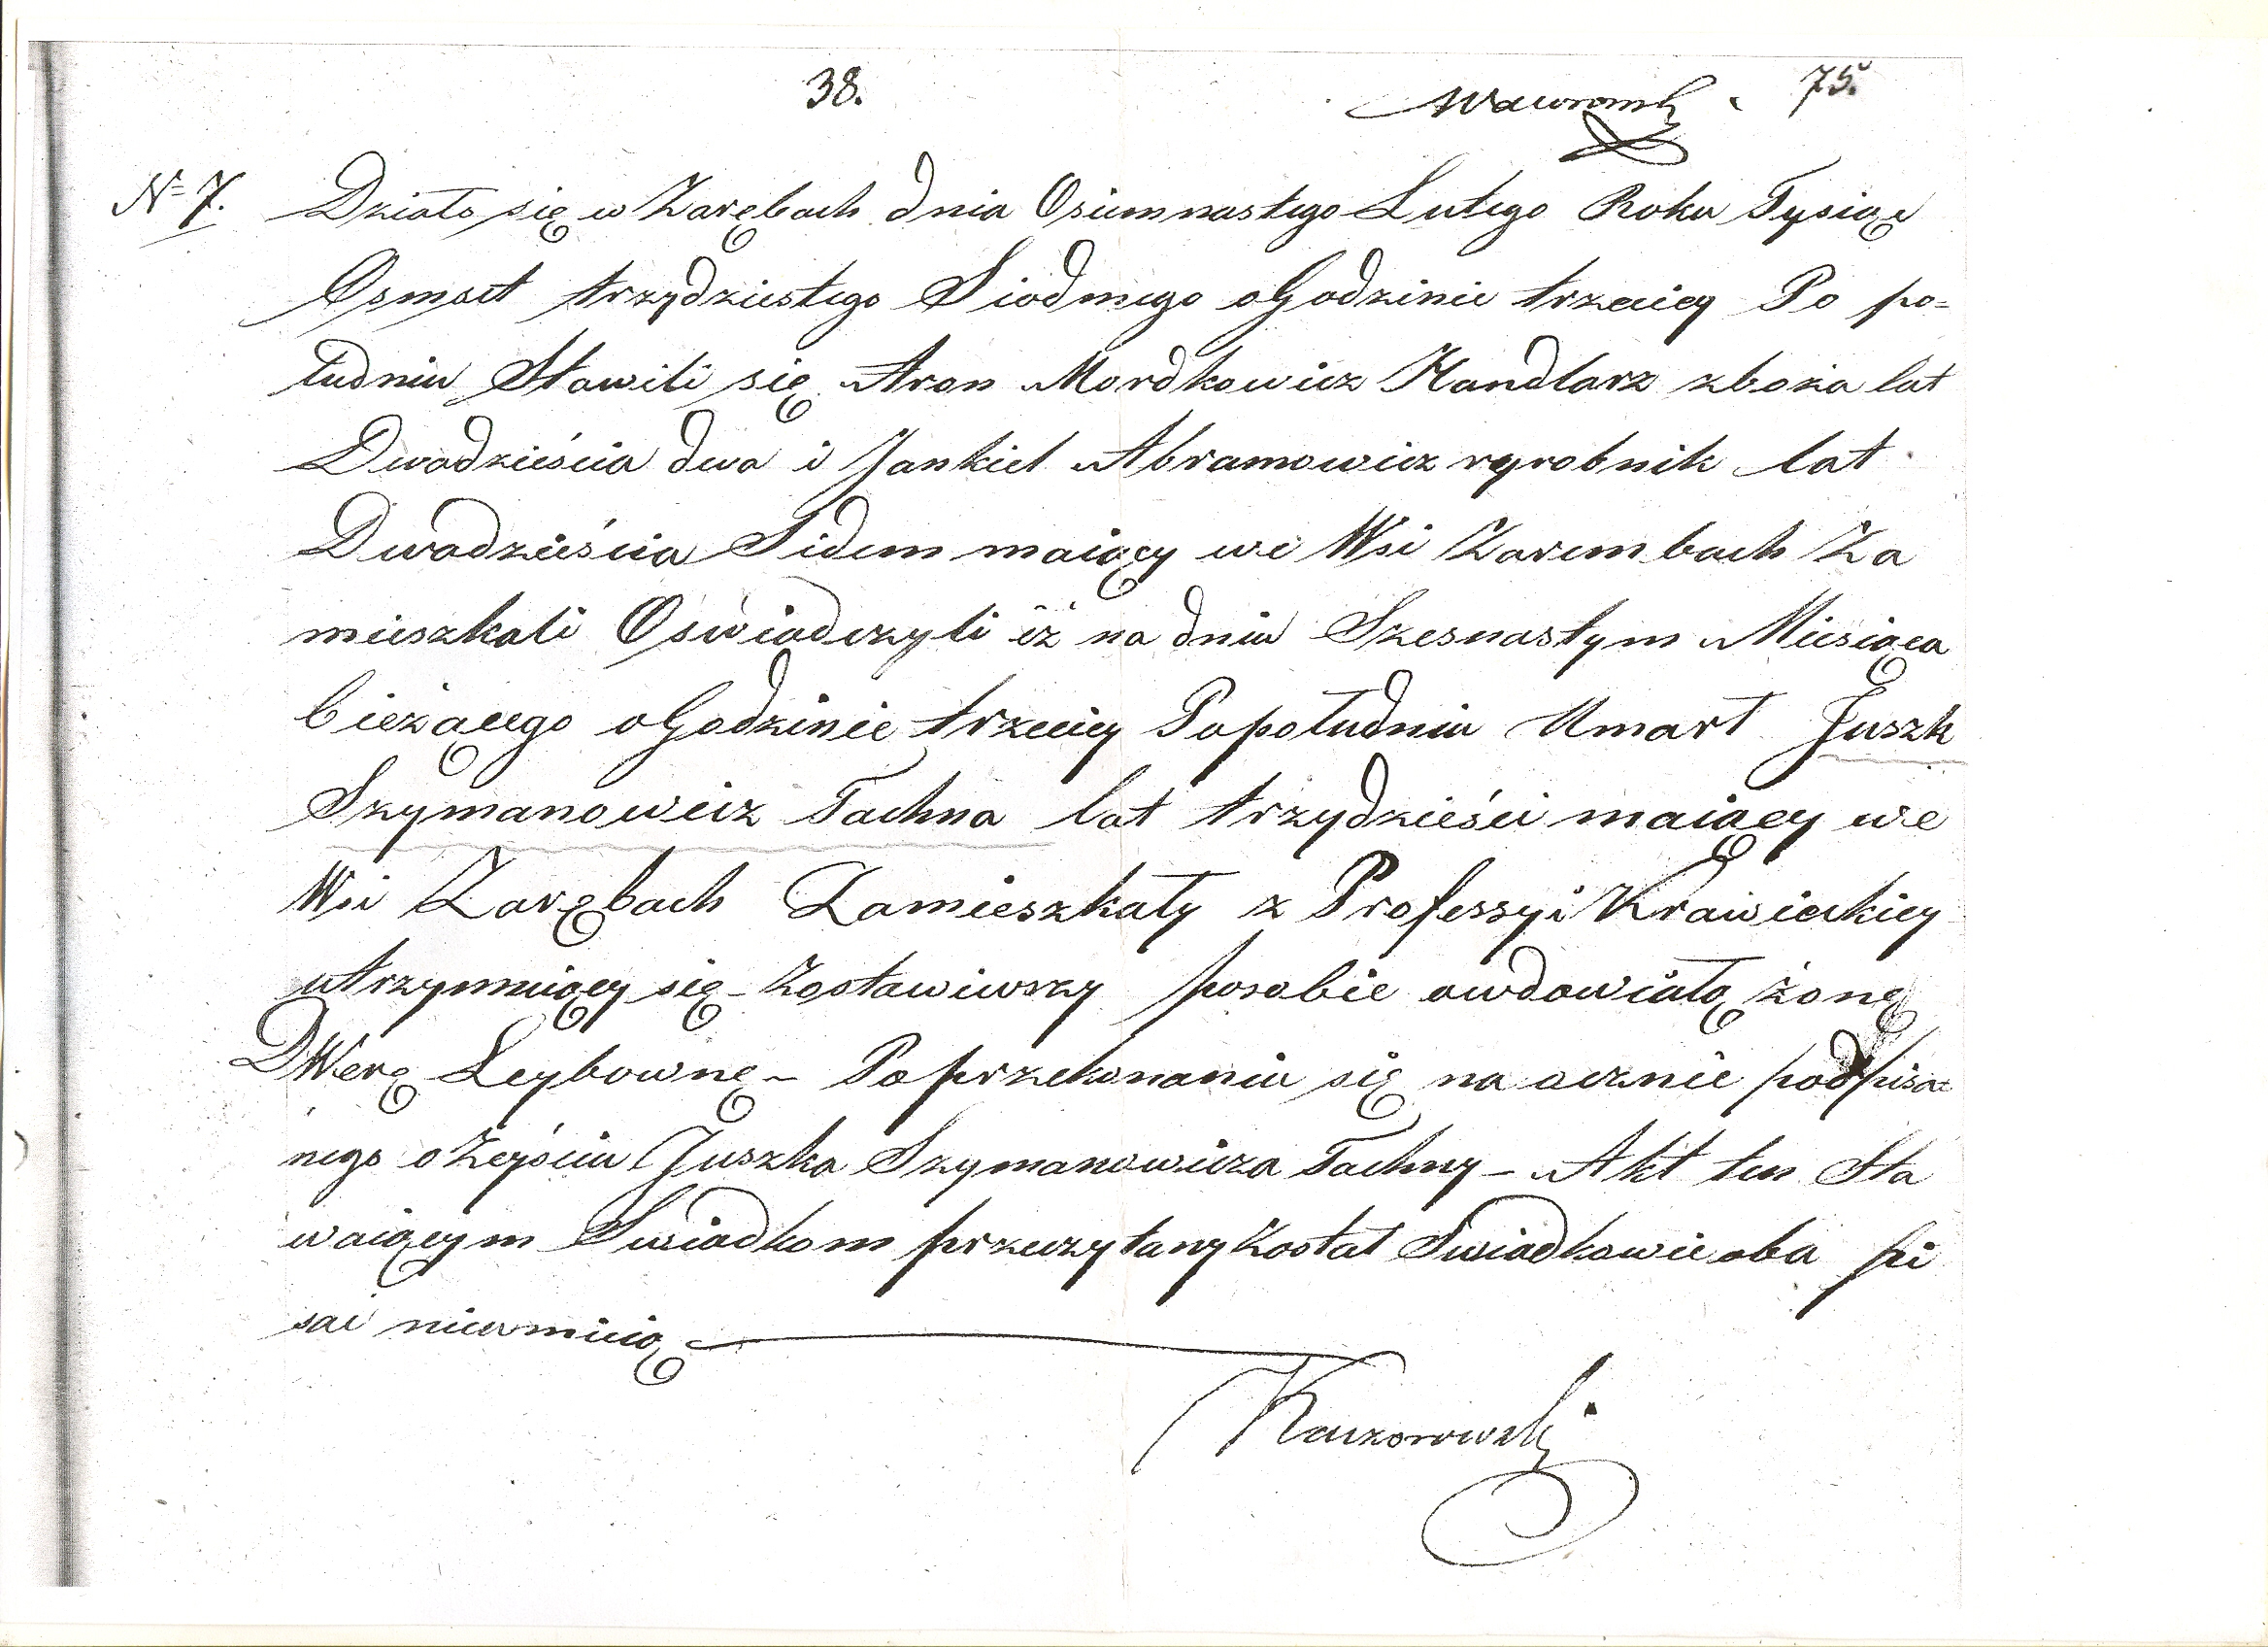 38.
75.
N= 7. Działo się w Zarębach dnia Osiemnastego Lutego Roku Tysiąc
Osmset trzydziestego Siodmego o Godzinie trzeciey Po po=
łudniu Stawili się Aron Mordkowicz Handlarz zboża lat
Dwadzieścia dwa i Jankiel Abramowicz wyrobnik lat
Dwadzieścia Sidem maiący we Wsi Zarembach Za
mieszkali Oświadczyli iż na dniu Szesnastym Miesiąca
bieżącego o Godzinie trzeciey Popołudniu Umarł Juszk
Szymanowicz Tachna lat trzydzieści maiący we
Wsi Zarębach Zamieszkały z Professyi Krawieckiey
utrzymuiący się – Zostawiwszy posobie owdowiałą żonę
DWerę Leybownę – Poprzekonaniu się na ocznie podpisa=
nego o Zeyściu Juszka Szymanowicza Tachny – Akt ten Sta
waiącym Swiadkom przeczytany Został Swiadkowie oba pi
sać nieumieią